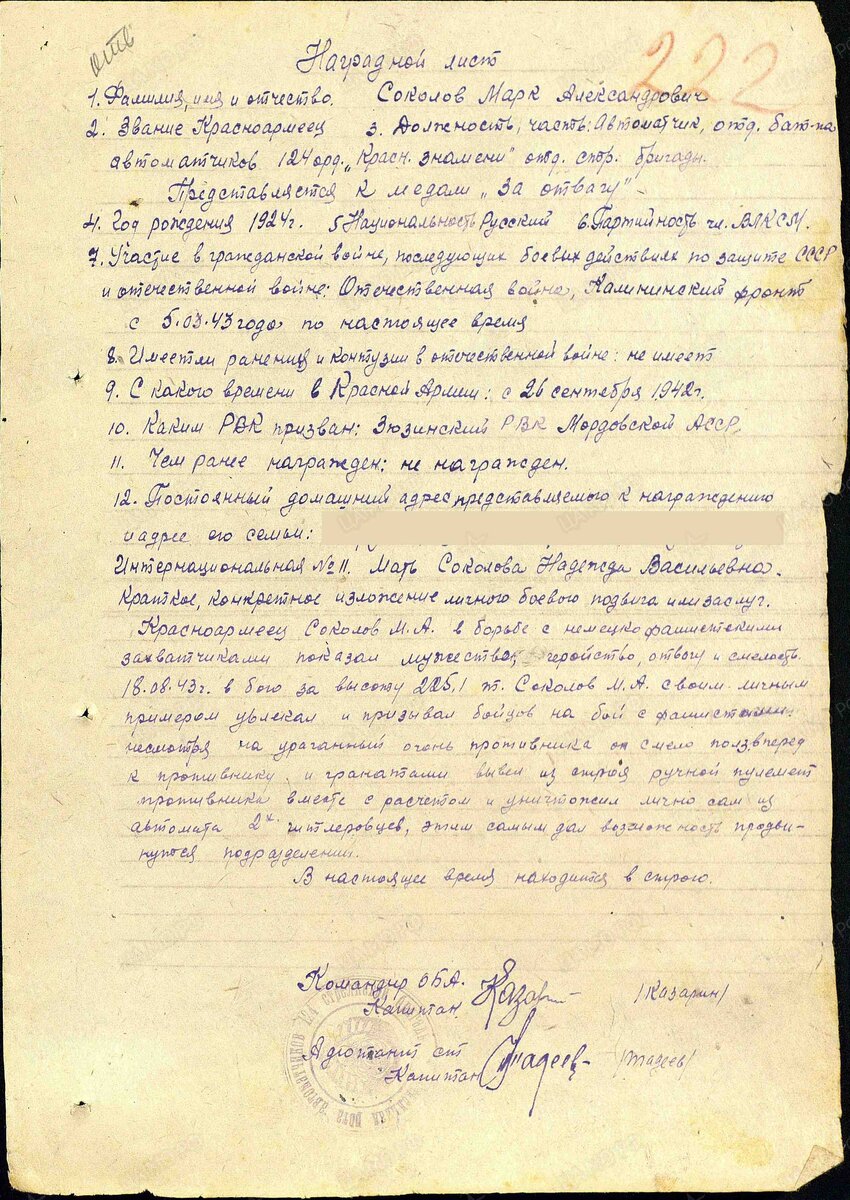 отв
222
Наградной лист
1. Фамилия, имя и отчество. Соколов Марк Александрович
2. Звание Красноармеец 3. Должность, часть: Автоматчик, отд. бат-на
автоматчиков 124 орд. „Красн. знамени" отд. стр. бригады.
Представляется к медали „За отвагу"
4. Год рождения 1924г. 5 Национальность Русский 6. Партийность чл. ВЛКСМ.
7. Участие в гражданской войне, последующих боевых действиях по защите СССР
и отечественной войне: Отечественная война, Калининский фронт
с 5.03.43 года по настоящее время
8. Имеет ли ранения и контузии в отечественной войне: не имеет
9. С какого времени в Красной Армии: с 26 сентября 1942г.
10. Каким РВК призван: Зюзинский РВК Мордовской АССР.
11. Чем ранее награжден: не награжден.
12. Постоянный домашний адрес представляемого к награждению
и адрес его семьи:
Интернациональная № 11. Мать Соколова Надежда Васильевна.
Краткое, конкретное изложение личного боевого подвига или заслуг.
Красноармеец Соколов М.А. в борьбе с немецко фашистскими
захватчиками показал мужество, геройство, отвагу и смелость.
18.08.43г. в бою за высоту 225,1 т. Соколов М.А. своим личным
примером увлекал и призывал бойцов на бой с фашистами.
несмотря на ураганный огонь противника он смело полз вперед
к противнику и гранатами вывел из строя ручной пулемет
противника вместе с расчетом и уничтожил лично сам из
автомата 2х гитлеровцев, этим самым дал возможность продви-
нутся подразделении.
В настоящее время находится в строю.
Командир ОБА.
Капитан Казарин /Казарин/
Адютант ст
Капитан Фадеев /Фадеев/